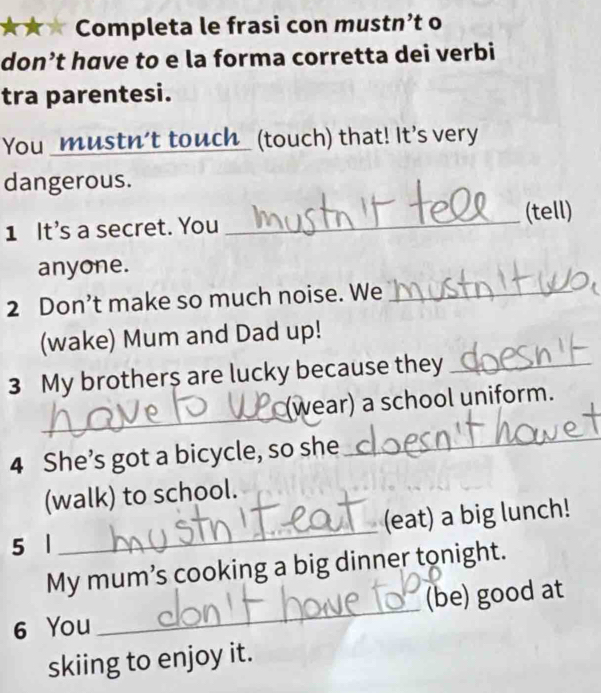 ★★☆ Completa le frasi con mustn't o
don't have to e la forma corretta dei verbi
tra parentesi.
You mustn't touch (touch) that! It's very
dangerous.
1 It's a secret. You mustn't tell (tell)
anyone.
2 Don't make so much noise. We mustn't
(wake) Mum and Dad up!
3 My brothers are lucky because they doesn't
have to wear (wear) a school uniform.
4 She's got a bicycle, so she doesn't have t
(walk) to school.
5 I mustn't eat (eat) a big lunch!
My mum's cooking a big dinner tonight.
6 You don't have to be (be) good at
skiing to enjoy it.